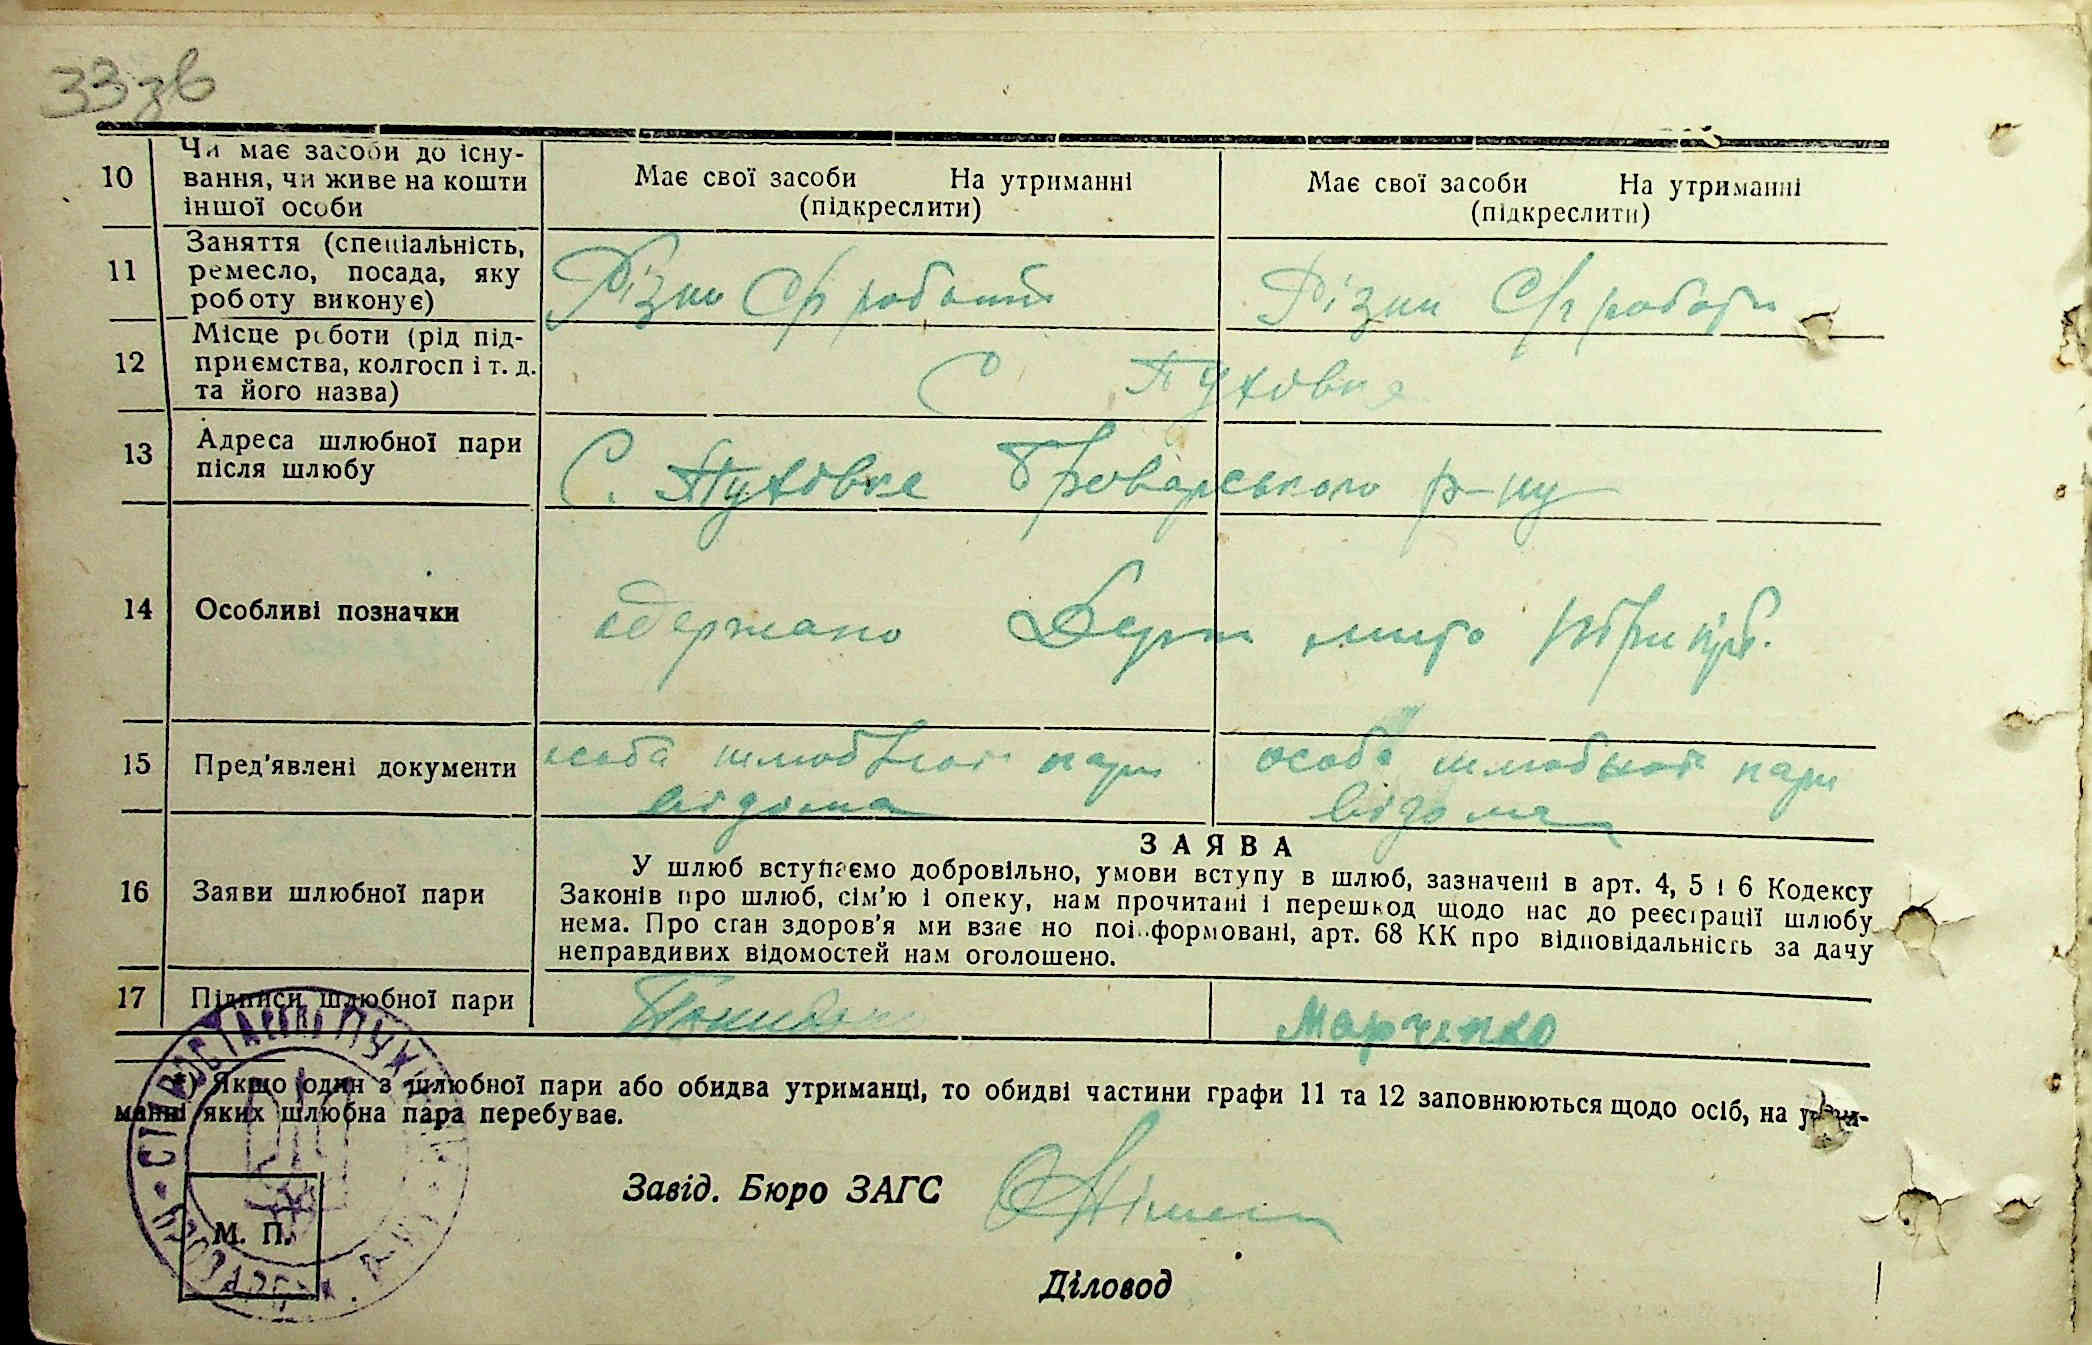 33 зв
10 Чи має засоби до існу-
вання, чи живе на кошти
іншої особи
Має свої засоби На утриманні
(підкреслити)
Має свої засоби На утриманні
(підкреслити)
11 Заняття (спеціальність,
ремесло, посада, яку
роботу виконує)
Різни С/г роботи
Різни С/г роботи
12 Місце роботи (рід під-
приємства, колгосп і т. д.
та його назва)
С Пуховка
13 Адреса шлюбної пари
після шлюбу
С. Пуховка Броварського р-ну
14 Особливі позначки
одержано Держ мито три крб.
15 Пред'явлені документи
особа шлюбної пари
відома
особа шлюбної пари
відома
16 Заяви шлюбної пари
ЗАЯВА
У шлюб вступаємо добровільно, умови вступу в шлюб, зазначені в арт. 4, 5 і 6 Кодексу
Законів про шлюб, сім'ю і опеку, нам прочитані і перешкод щодо нас до реєстрації шлюбу
нема. Про стан здоров'я ми взає но поі формовані, арт. 68 КК про відповідальність за дачу
неправдивих відомостей нам оголошено.
17 Підписи шлюбної пари
Марченко
*) Якщо один з шлюбної пари або обидва утриманці, то обидві частини графи 11 та 12 заповнюються щодо осіб, на утри-
манні яких шлюбна пара перебуває.
Завід. Бюро ЗАГС
М. П.
Діловод